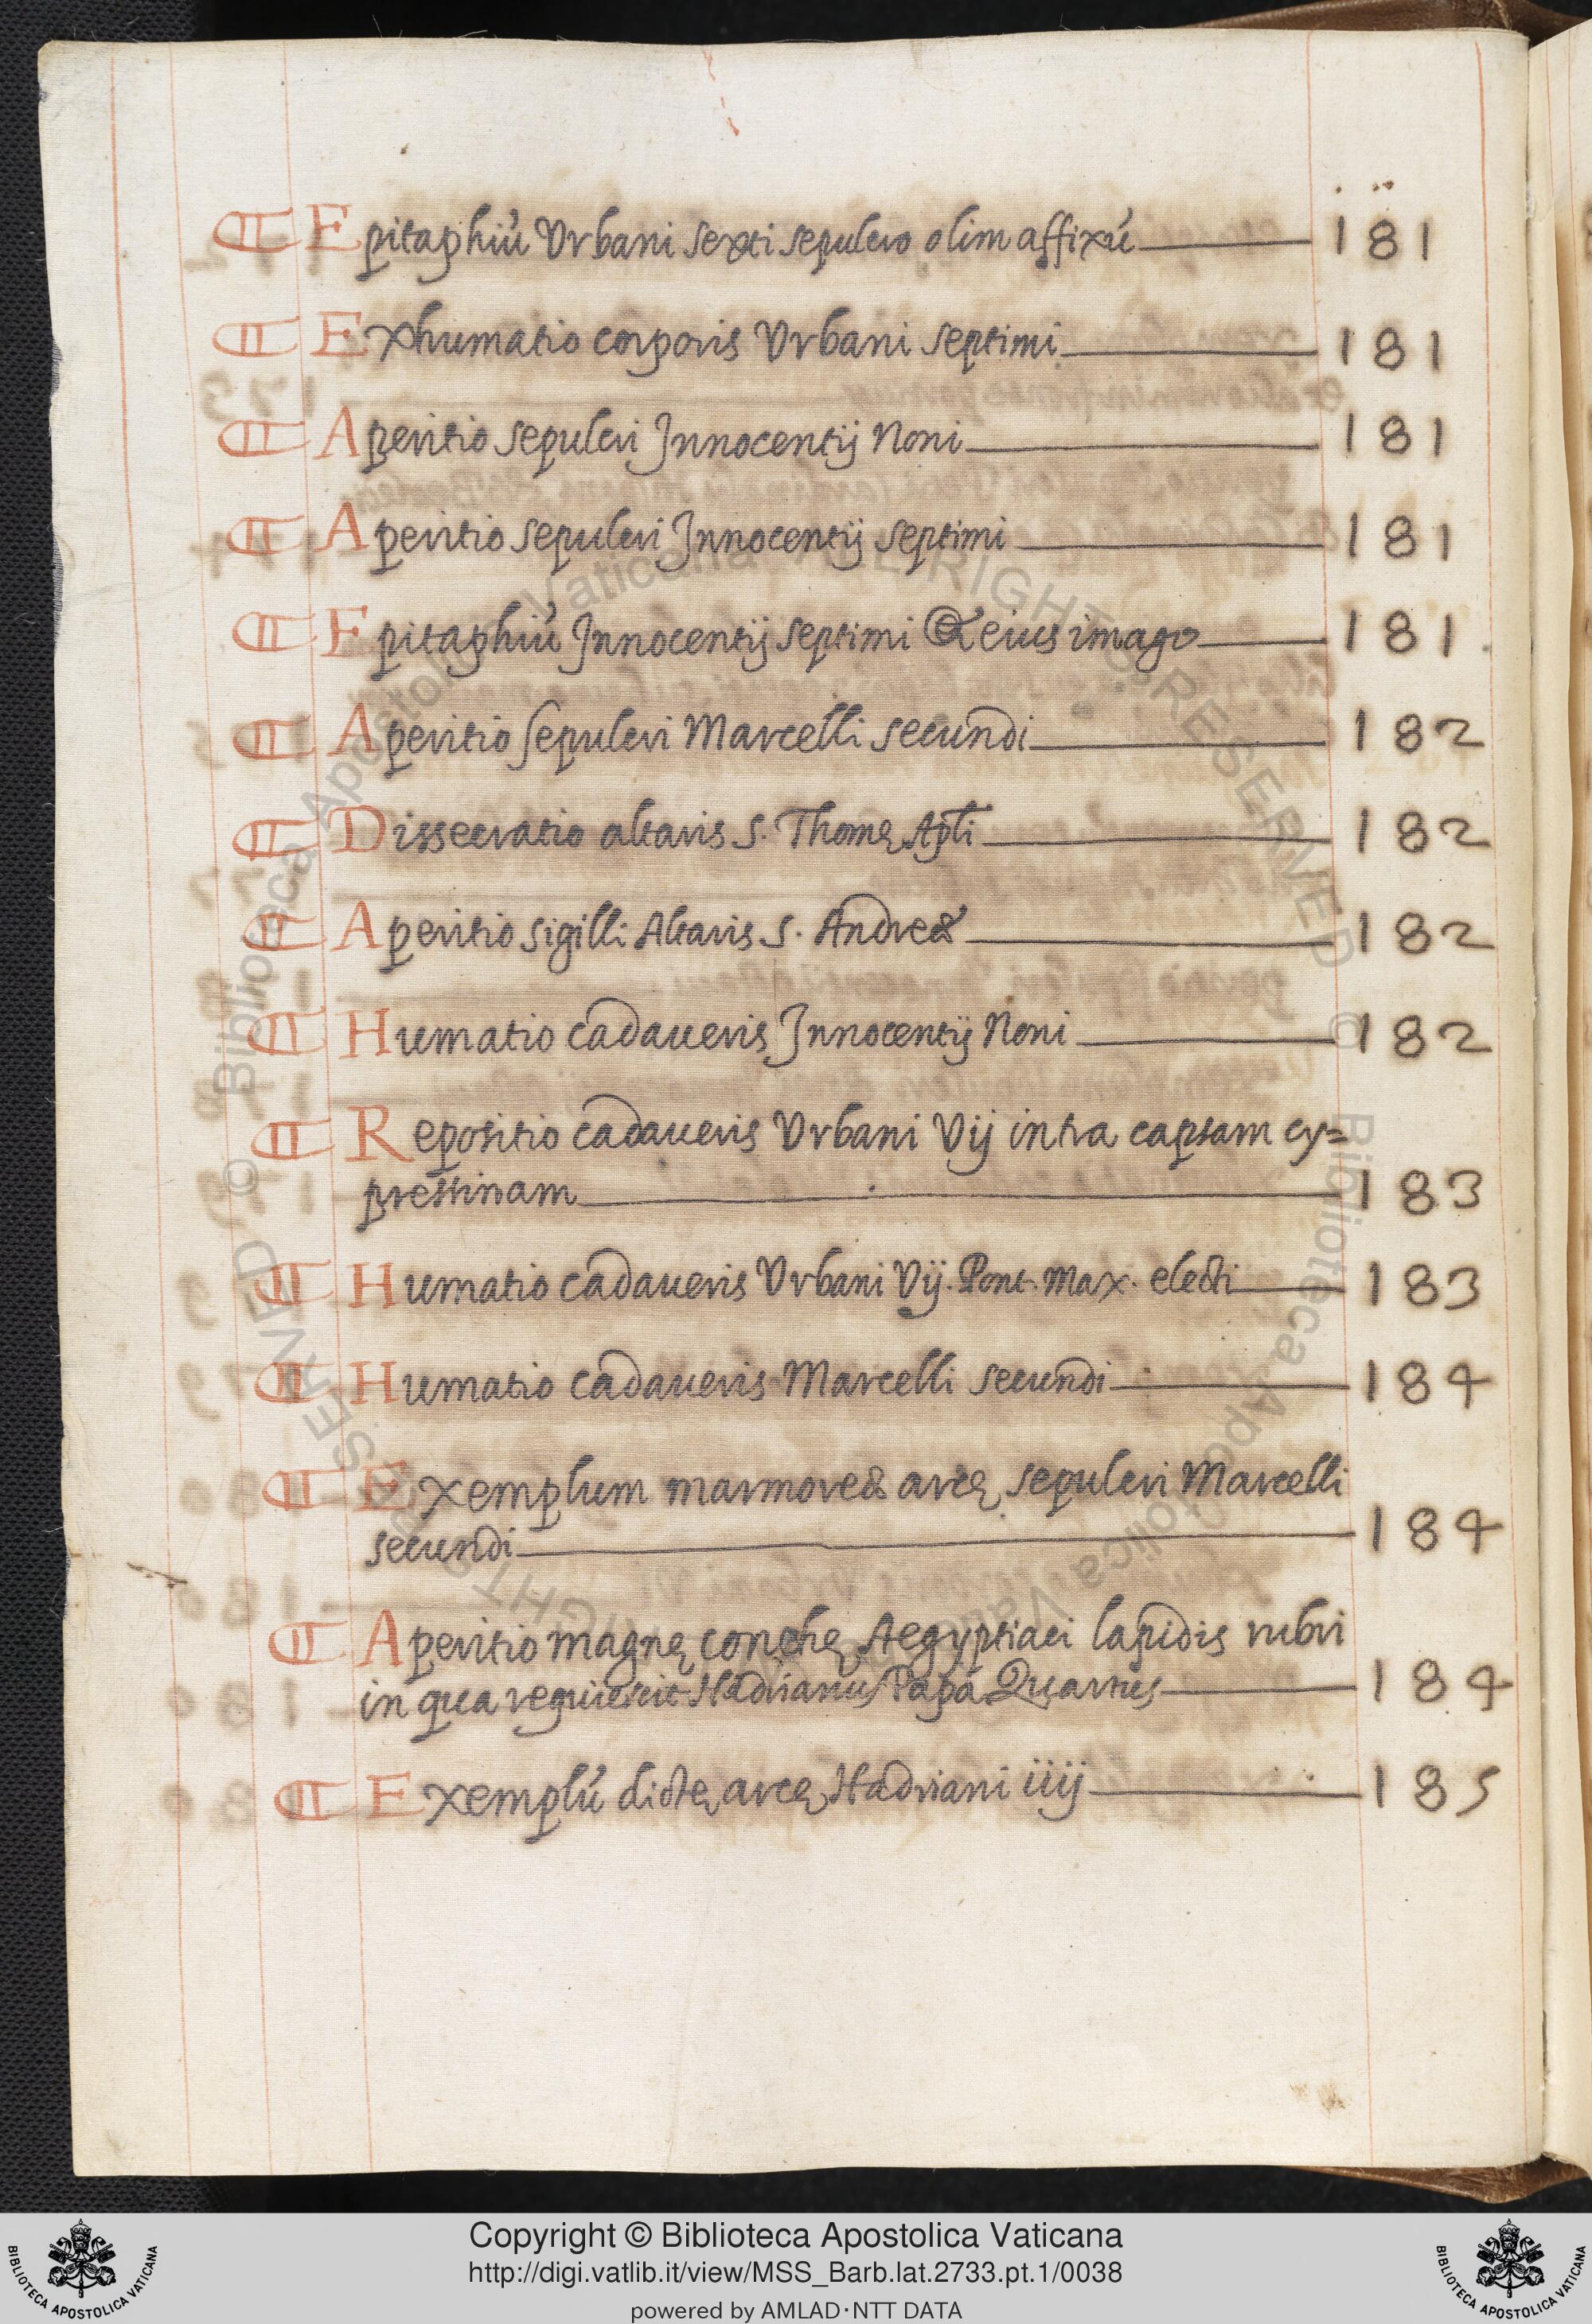 ¶ Epitaphiũ Vrbani sexti sepulcro olim affixũ 181
¶ Exhumatio corporis Vrbani septimi 181
¶ Aperitio sepulcri Jnnocentij Noni 181
¶ Aperitio sepulcri Jnnocentij septimi 181
¶ Epitaphiũ Jnnocentij septimi & eius imago 181
¶ Aperitio sepulcri Marcelli secundi 182
¶ Dissecratio altaris S. Thomę Apłi 182
¶ Aperitio sigilli Altaris S. Andreæ 182
¶ Humatio cadaueris Jnnocentij Noni 182
¶ Repositio cadaueris Vrbani Vij intra capsam cy=
pressinam 183
¶ Humatio cadaueris Vrbani Vij. Pont. Max. electi 183
¶ Humatio cadaueris Marcelli secundi 184
¶ Exemplum marmoreæ arcę sepulcri Marcelli
secundi 184
¶ Aperitio magnę conchę Aegyptiaci lapidis rubri
in qua requiescit Hadrianus Papa Quartus 184
¶ Exemplũ dictę arcę Hadriani iiij 185
Copyright © Biblioteca Apostolica Vaticana
http://digi.vatlib.it/view/MSS_Barb.lat.2733.pt.1/0038
powered by AMLAD·NTT DATA
BIBLIOTECA APOSTOLICA VATICANA
BIBLIOTECA APOSTOLICA VATICANA